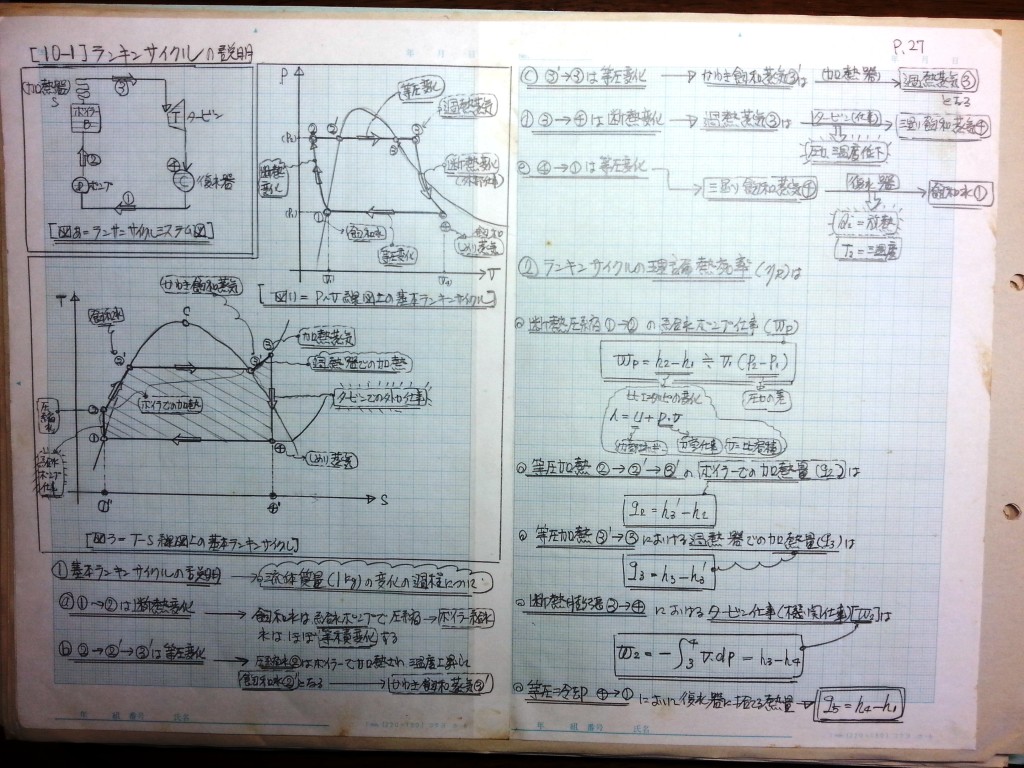 [10-1] ランキンサイクルの説明
P.27
加熱器
S
③
ボイラー
B
T タービン
②
④
P ポンプ
C 復水器
①
P
等圧変化
過熱蒸気
断熱変化
(P₂)
(P₁)
②
②'
③'
③
断熱変化
(外部仕事)
①
④
飽和水
等圧変化
飽和
しめり蒸気
V
[図(1)=P-V線図上の基本ランキンサイクル]
T
飽和水
C
かわき飽和蒸気
②'
③'
③
加熱蒸気
過熱器での加熱
ボイラでの加熱
タービンでの外部仕事
②
①
④
しめり蒸気
給水ポンプ仕事
①''
④''
S
[図3=T-S線図上の基本ランキンサイクル]
① 基本ランキンサイクルの説明
流体質量(1kg)の変化の過程について
ⓐ ①→②は断熱変化 → 飽和水は給水ポンプで圧縮→ボイラー給水
水はほぼ等積変化する
ⓑ ②→②'→③'は等圧変化 → 圧縮水②はボイラーで加熱され温度上昇し
飽和水②'となる → かわき飽和蒸気③'
ⓒ ③'→③は等圧変化 → かわき飽和蒸気③' 加熱器 過熱蒸気③
となる
③→④は断熱変化 → 過熱蒸気③は タービン(仕事) → 湿り飽和蒸気④
圧力、温度低下
④→①は等圧変化
湿り飽和蒸気④ 復水器 → 飽和水①
Q₂=放熱
T₂=温度
② ランキンサイクルの理論熱効率(ηR)は
断熱圧縮①→②の給水ポンプ仕事(Wp)
Wp = h₂-h₁ ≒ V₁(P₂-P₁)
比エンタルピの変化
圧力の差
h = u + P.v
V=比容積
等圧加熱②→②'→③'のボイラーでの加熱量(q₂)は
q₂ = h₃'-h₂
等圧加熱③'→③における過熱器での加熱量(q₃)は
q₃ = h₃-h₃'
断熱膨張③→④におけるタービン仕事(機関仕事)[W₂]は
W₂ = -∫₃⁴ V.dp = h₃-h₄
等圧冷却④→①において復水器に捨てる熱量→ q₅ = h₄-h₁
年 組 番号 氏名
年 組 番号 氏名